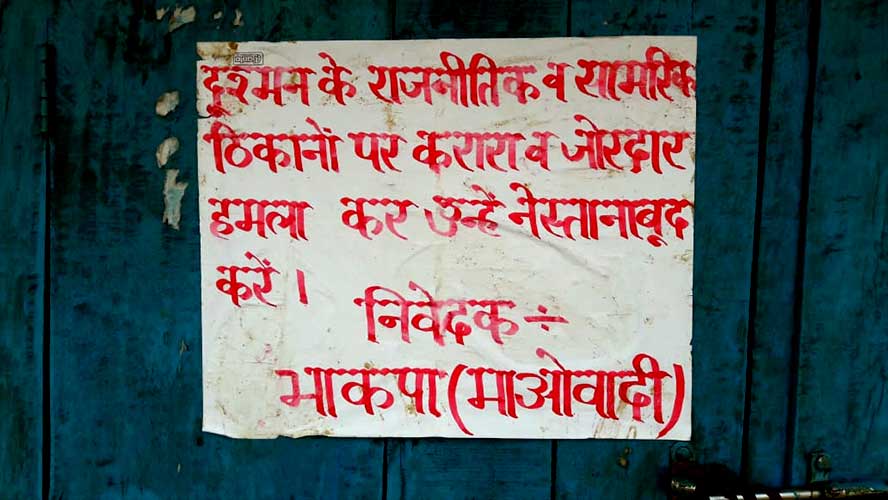 दुश्मन के राजनीतिक व सामरिक
ठिकानों पर करारा व जोरदार
हमला कर उन्हें नेस्तानाबूद
करें ।
निवेदक ÷
भाकपा (माओवादी)